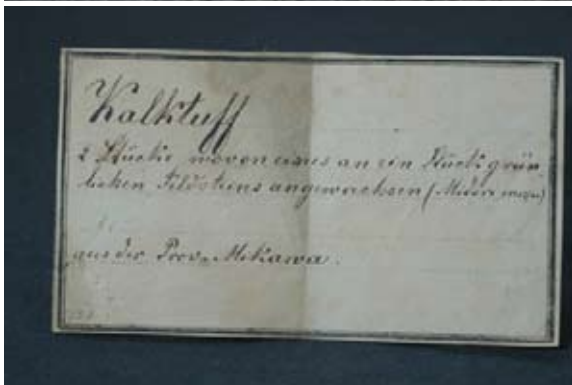 Kalktuff
2 Stücke wovon eines an ein Stück grün-
lichen Feldsteins angewachsen (
aus der Prov. Mikawa.